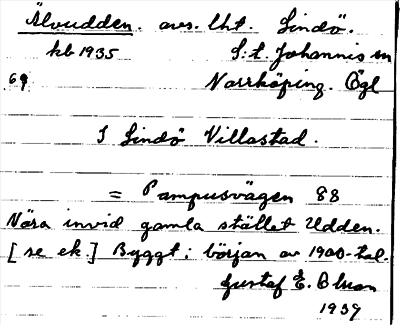 Älvudden. avs. lht. Lindö.
kb 1935 S:t Johannis sn
69 Norrköping. Ögl
I Lindö Villastad.
= Pampusvägen 88
Nära invid gamla stället Udden.
[se ek.] Byggt i början av 1900-tal.
Gustaf E. Olsson
1939